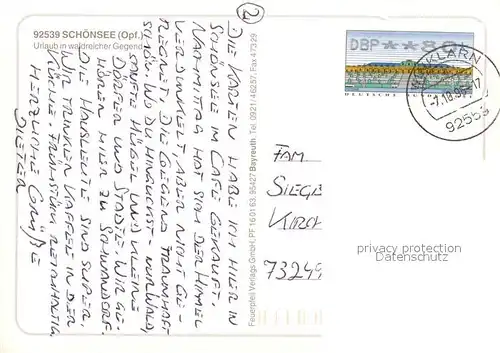 2
92539 SCHÖNSEE (Opf.)
Urlaub in waldreicher Gegend
DIE KARTEN HABE ICH HIER IN
SCHÖNSEE IM CAFE GEKAUFT.
NACHMITTAG HAT SICH DER HIMMEL
VERDUNKELT, ABER NICHT GE-
REGNET. DIE GEGEND TRAUMHAFT
SCHÖN. WO DU HINGUCKST - NUR WALD,
SANFTE HÜGEL UND KLEINE
DÖRFER UND STÄDTE. WIR GE-
HÖREN HIER ZU SCHWANDORF.
DIE HAUSLEUTE SIND SUPER.
WIR TRINKEN KAFFEE IN DER
KÜCHE. FRÜHSTÜCK REICHHALTIG
HERZLICHE GRÜßE
DIETER
Feuerpfeil Verlags GmbH, PF 16 01 63, 95427 Bayreuth, Tel. 0921/46257, Fax 47329
DBP**80
DEUTSCHE
KLARN
92559
FAM
SIEGE
KIRCH
73249
privacy protection
Datenschutz